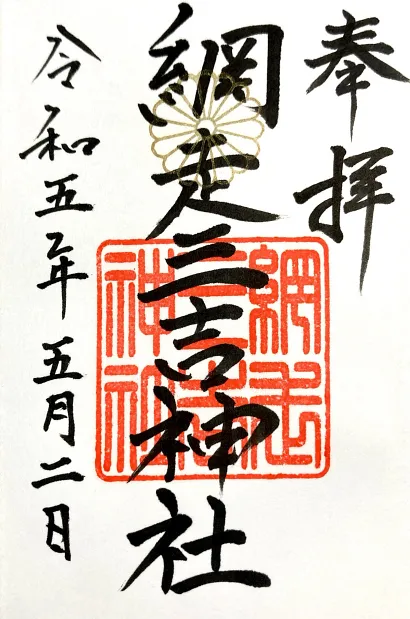 奉拝
網走三吉神社
網走
三吉
神社
令和五年五月二日